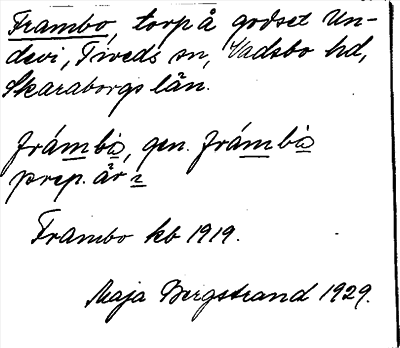 Frambo, torp å godset Un-
devi, Tiveds sn, Vadsbo hd,
Skaraborgs län.
frámbò, gen. frámbòs
prep. är
Frambo kb 1919.
Maja Bergstrand 1929.